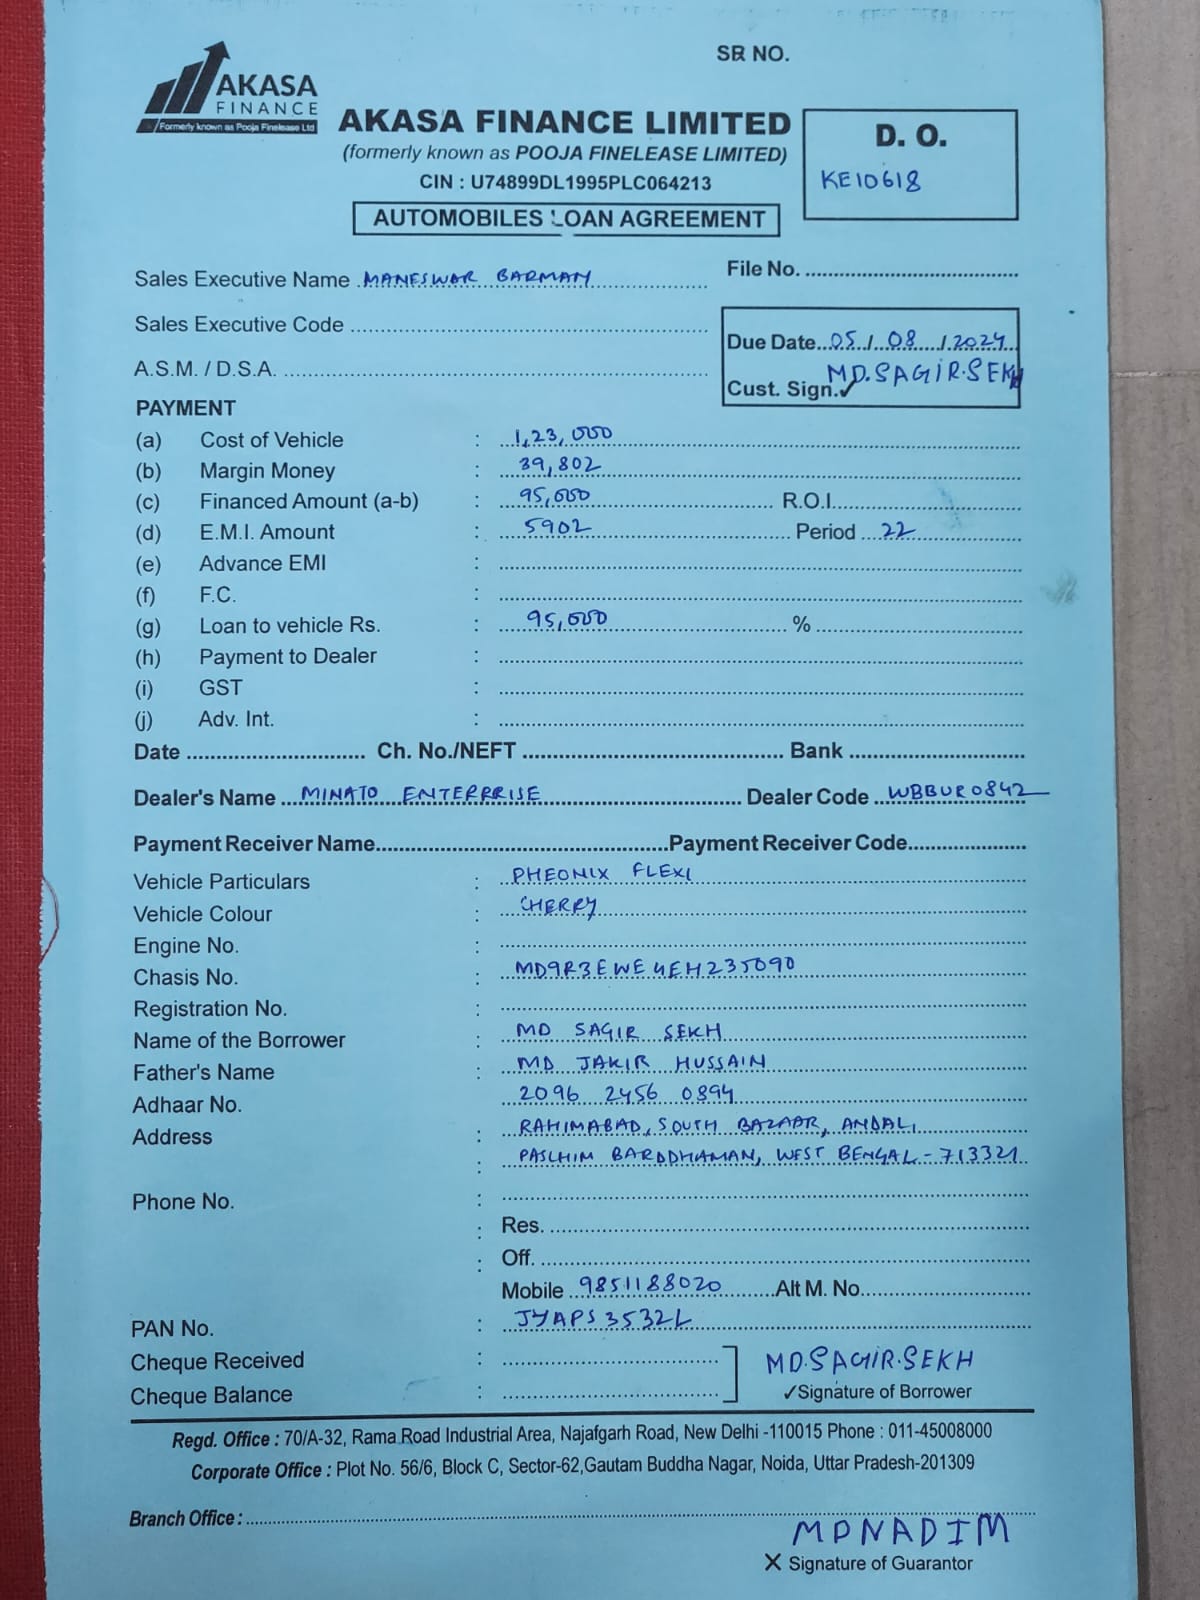 SR NO.
AKASA
FINANCE
Formerly known as Pooja Finelease Ltd
AKASA FINANCE LIMITED
(formerly known as POOJA FINELEASE LIMITED)
CIN : U74899DL1995PLC064213
AUTOMOBILES LOAN AGREEMENT
D. O.
KE10618
Sales Executive Name MANESWAR BARMAN
File No.
Sales Executive Code
Due Date 05/08/2024
A.S.M. / D.S.A.
Cust. Sign. ✓ MD.SAGIR.SEKH
PAYMENT
(a) Cost of Vehicle : 1,23,000
(b) Margin Money : 39,802
(c) Financed Amount (a-b) : 95,000 R.O.I.
(d) E.M.I. Amount : 5902 Period 22
(e) Advance EMI :
(f) F.C. :
(g) Loan to vehicle Rs. : 95,000 %
(h) Payment to Dealer :
(i) GST :
(j) Adv. Int. :
Date Ch. No./NEFT Bank
Dealer's Name MINATO ENTERPRISE Dealer Code WBBUR0842
Payment Receiver Name Payment Receiver Code
Vehicle Particulars : PHEONIX FLEXI
Vehicle Colour : CHERRY
Engine No. :
Chasis No. : MD9R3EWE4EH235090
Registration No. :
Name of the Borrower : MD SAGIR SEKH
Father's Name : MD JAKIR HUSSAIN
Adhaar No. 2096 2456 0894
Address : RAHIMABAD, SOUTH BAZAAR, ANDAL,
: PASCHIM BARDDHAMAN, WEST BENGAL - 713321
Phone No. :
: Res.
: Off.
Mobile 9851188020 Alt M. No.
PAN No. : JYAPS3532L
Cheque Received : MD.SAGIR.SEKH
Cheque Balance : ✓Signature of Borrower
Regd. Office : 70/A-32, Rama Road Industrial Area, Najafgarh Road, New Delhi -110015 Phone : 011-45008000
Corporate Office : Plot No. 56/6, Block C, Sector-62,Gautam Buddha Nagar, Noida, Uttar Pradesh-201309
Branch Office :
MDNADIM
X Signature of Guarantor